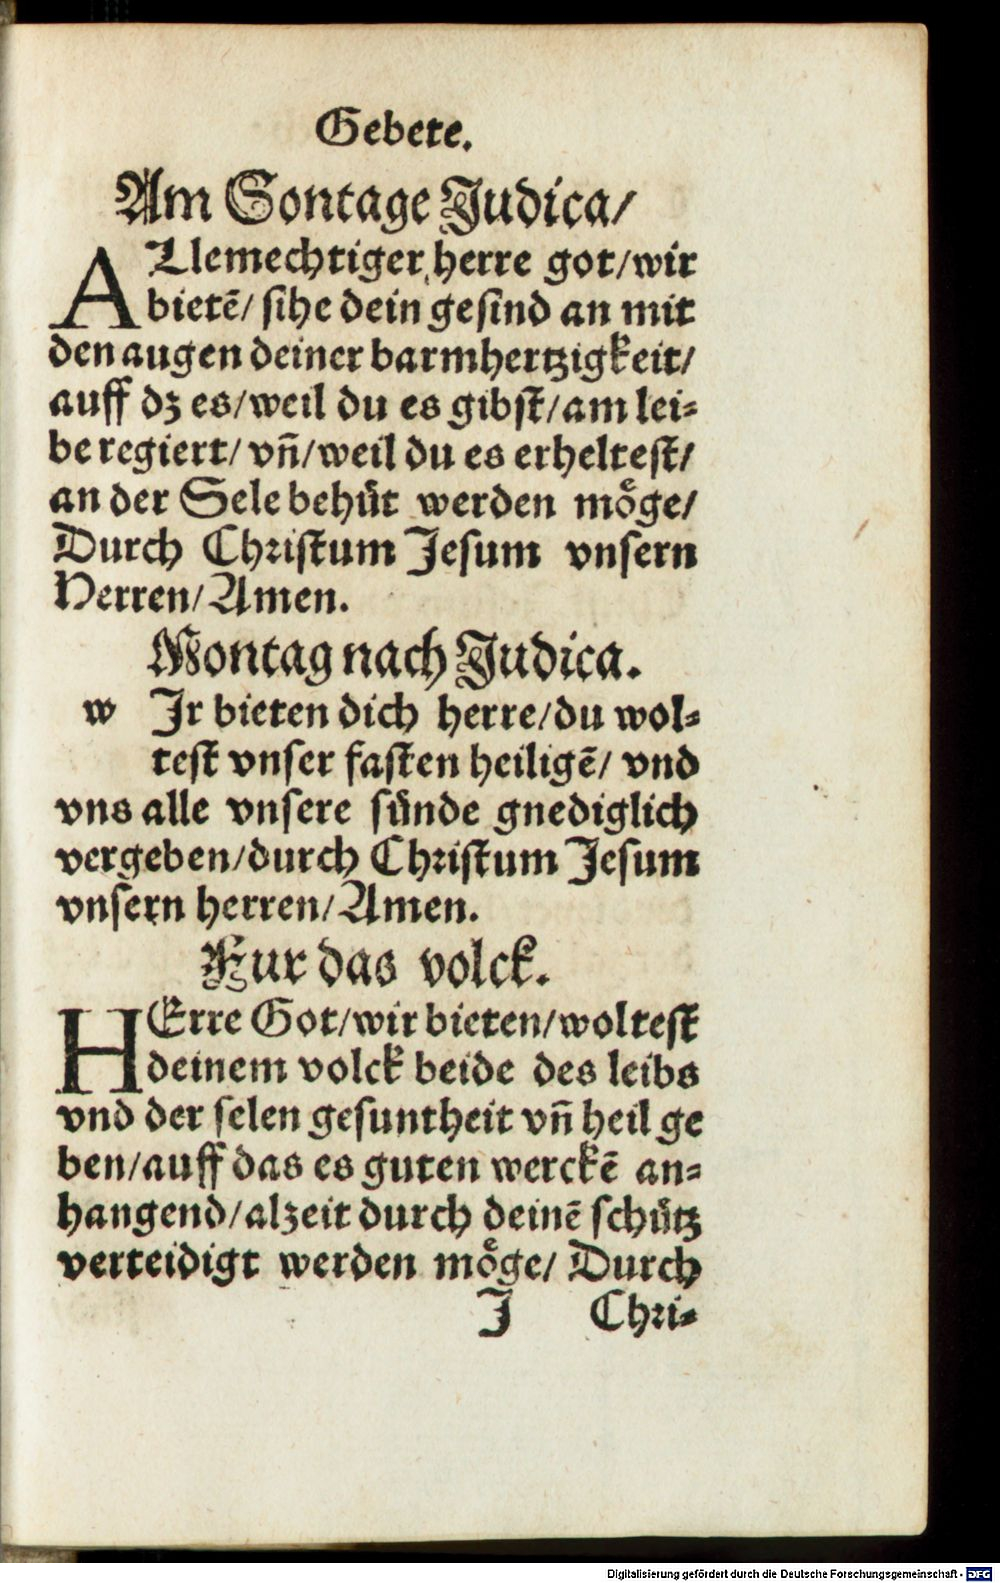 Gebete.
Am Sontage Judica/
ALlemechtiger herre got/wir
bietē/ sihe dein gesind an mit
den augen deiner barmhertzigkeit/
auff dz es/weil du es gibst/am lei⸗
be regiert/ vñ/weil du es erheltest/
an der Sele behüt werden möge/
Durch Christum Jesum vnsern
Herren/Amen.
Montag nach Judica.
w Jr bieten dich herre/du wol⸗
test vnser fasten heiligē/ vnd
vns alle vnsere sünde gnediglich
vergeben/durch Christum Jesum
vnsern herren/Amen.
Fur das volck.
HErre Got/wir bieten/woltest
deinem volck beide des leibs
vnd der selen gesuntheit vñ heil ge
ben/auff das es guten werckē an⸗
hangend/alzeit durch deinē schütz
verteidigt werden möge/ Durch
J Chri⸗
Digitalisierung gefördert durch die Deutsche Forschungsgemeinschaft - DFG